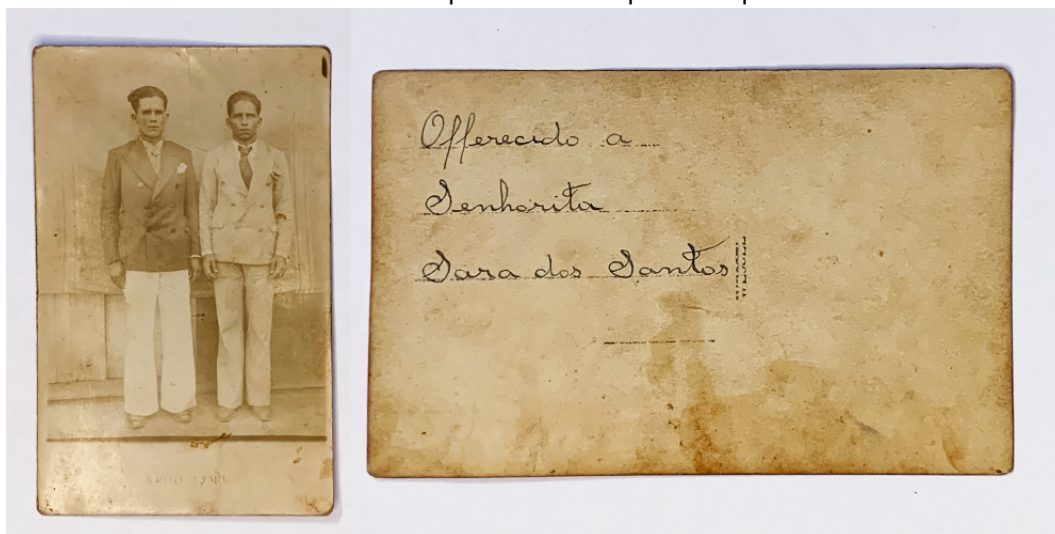 Offerecido a
Senhorita
Sara dos Santos